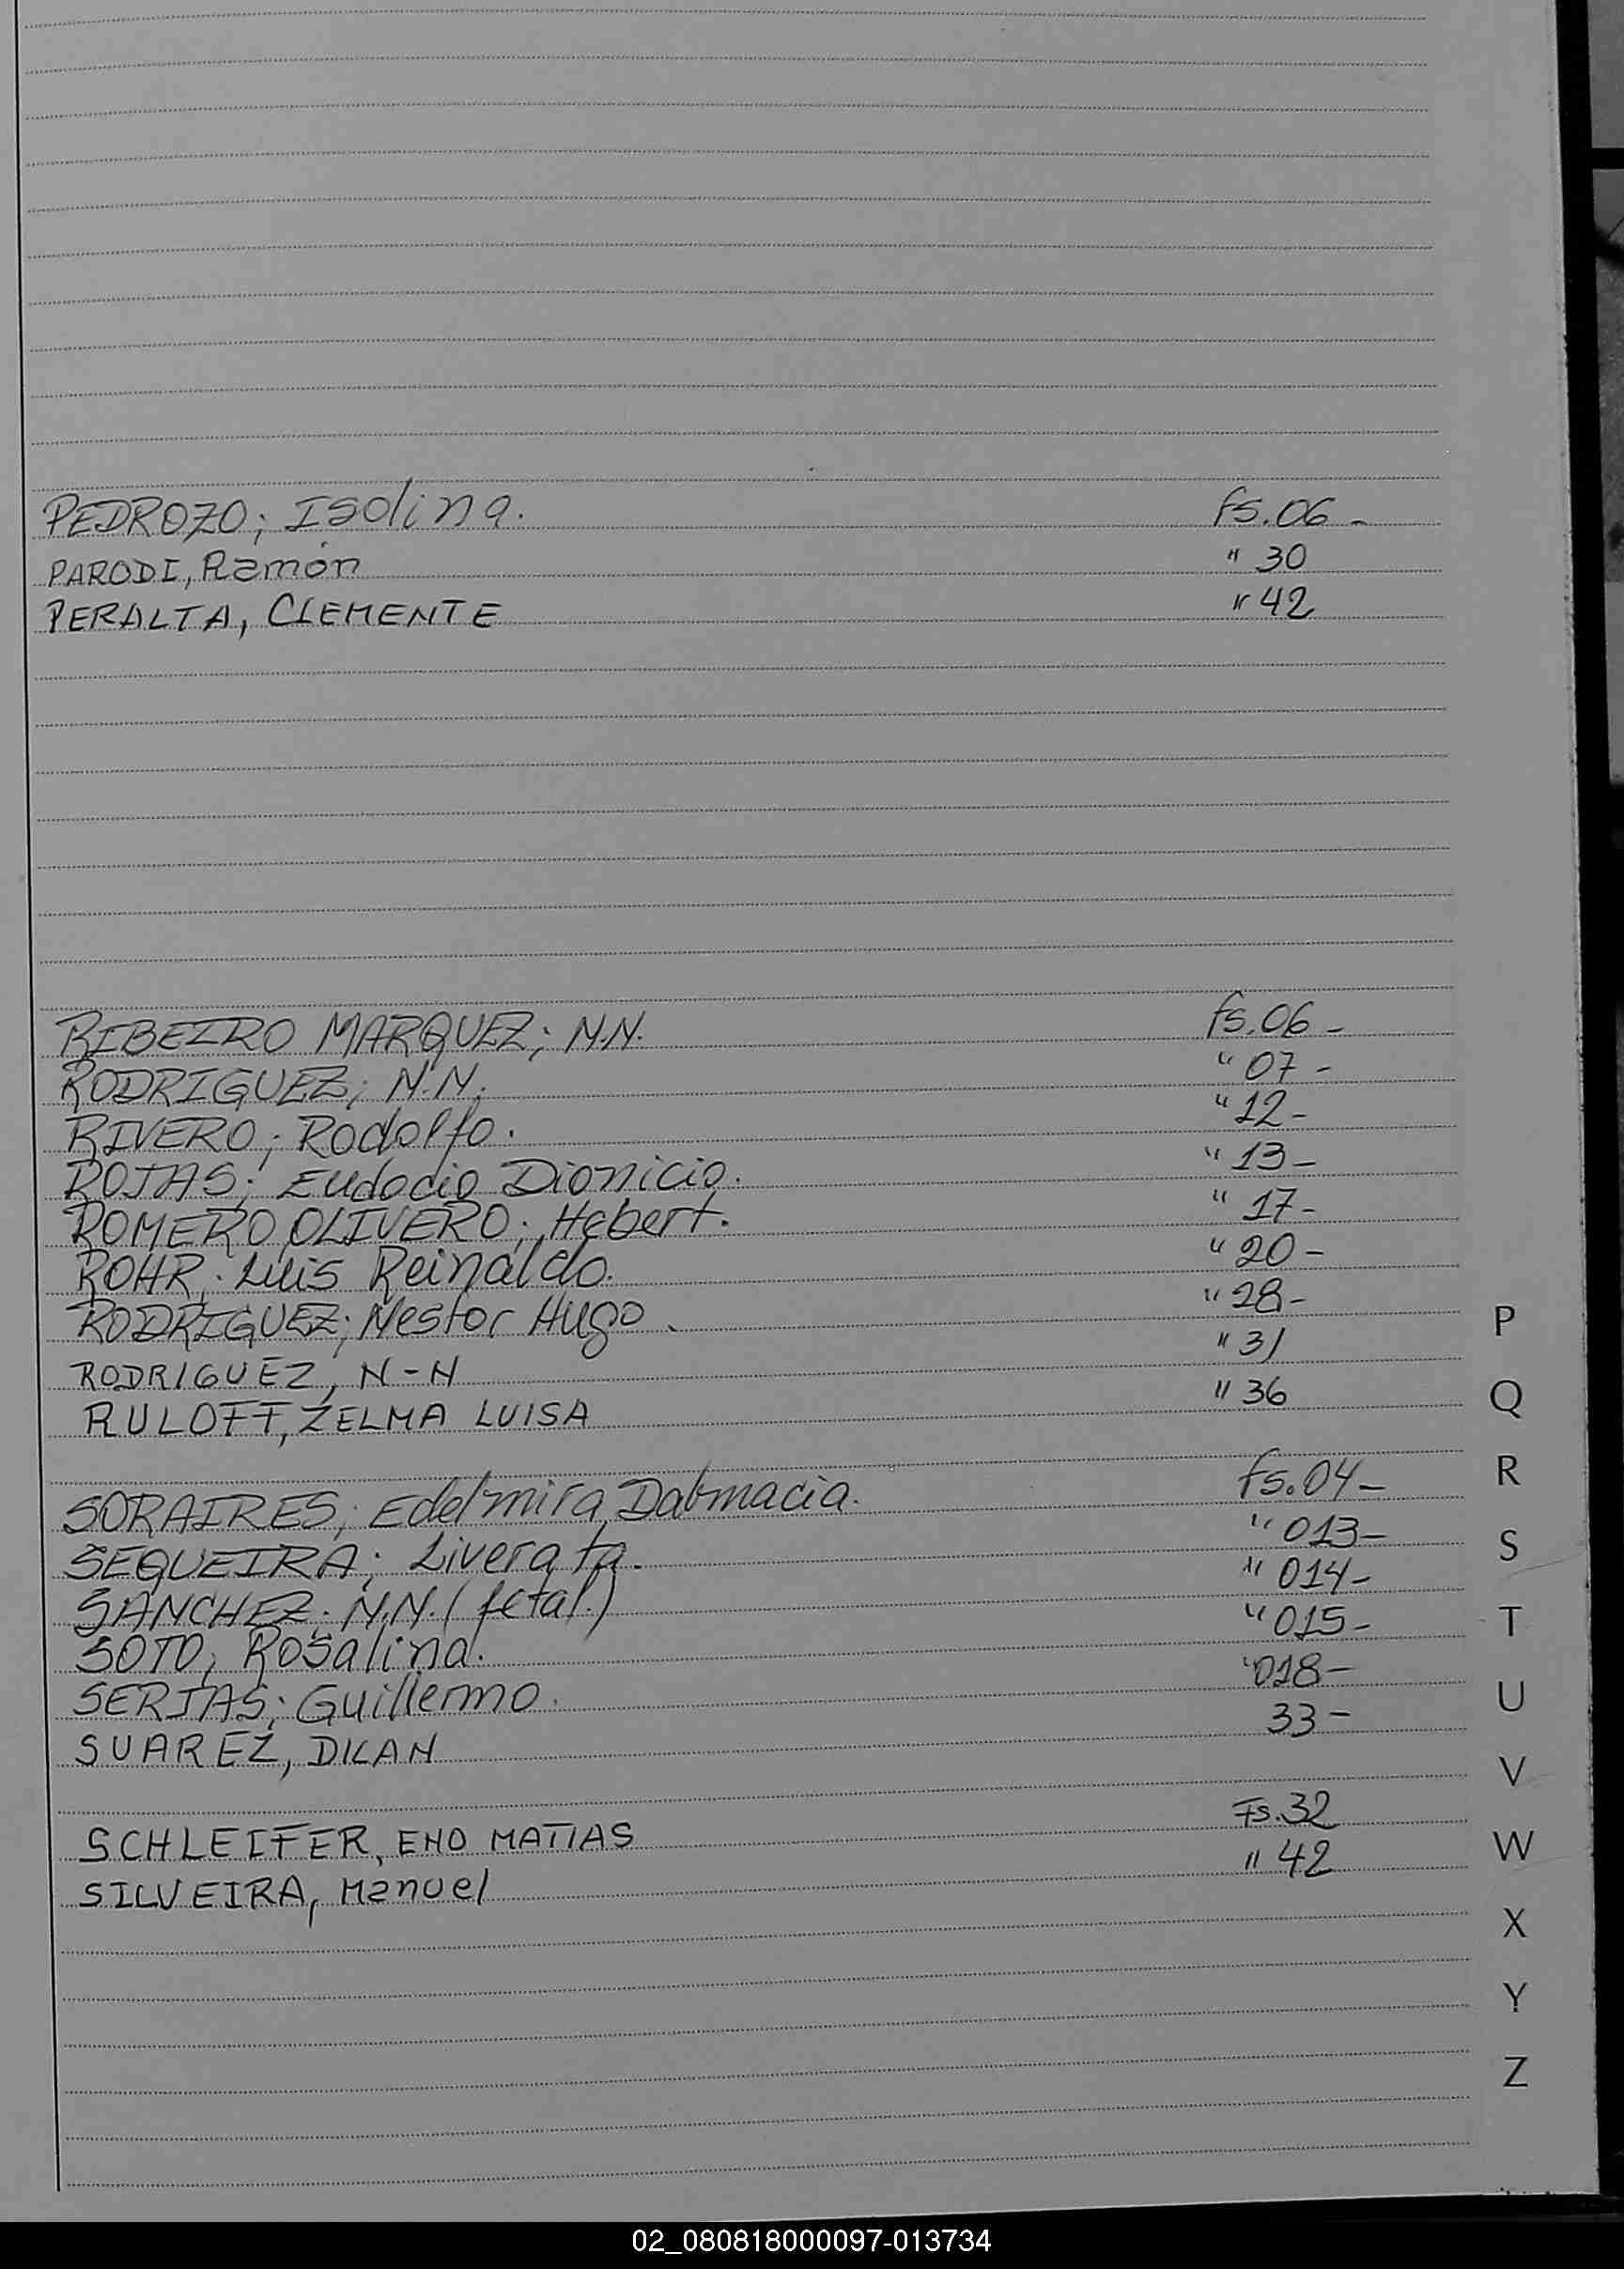 PEDROZO; Isolina. fs. 06 -
PARODI, Ramón " 30
PERALTA, CLEMENTE " 42
RIBEIRO MARQUEZ; N.N. fs. 06 -
RODRIGUEZ; N.N. " 07 -
RIVERO; Rodolfo. " 12 -
ROJAS; Eudocio Dionicio. " 13 -
ROMERO OLIVERO; Hebert. " 17 -
ROHR; Luis Reinaldo. " 20 -
RODRIGUEZ; Nestor Hugo. " 28 -
RODRIGUEZ, N-N " 31
RULOFF, ZELMA LUISA " 36
SORAIRES; Edelmira Dalmacia. fs. 04 -
SEQUEIRA; Liverata. " 013 -
SANCHEZ; N.N. (fetal.) " 014 -
SOTO; Rosalina. " 015 -
SERJAS; Guillermo. " 018 -
SUAREZ, DILAN 33 -
SCHLEIFER, ENO MATIAS Fs. 32
SILVEIRA, Manuel " 42
P
Q
R
S
T
U
V
W
X
Y
Z
02_080818000097-013734